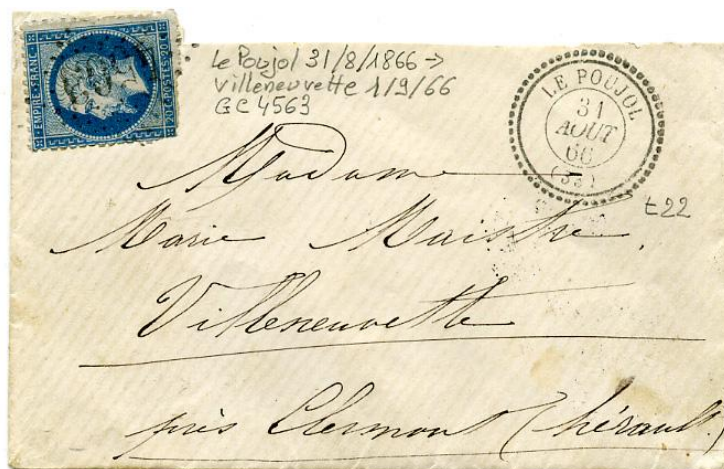 EMPIRE FRANC
20 C POSTES 20 C
Le Poujol 31/8/1866 →
Villeneuvette 1/9/66
GC 4563
LE POUJOL
31
AOUT
66
t22
Madame
Marie Maistre
Villeneuvette
près Clermont (hérault)